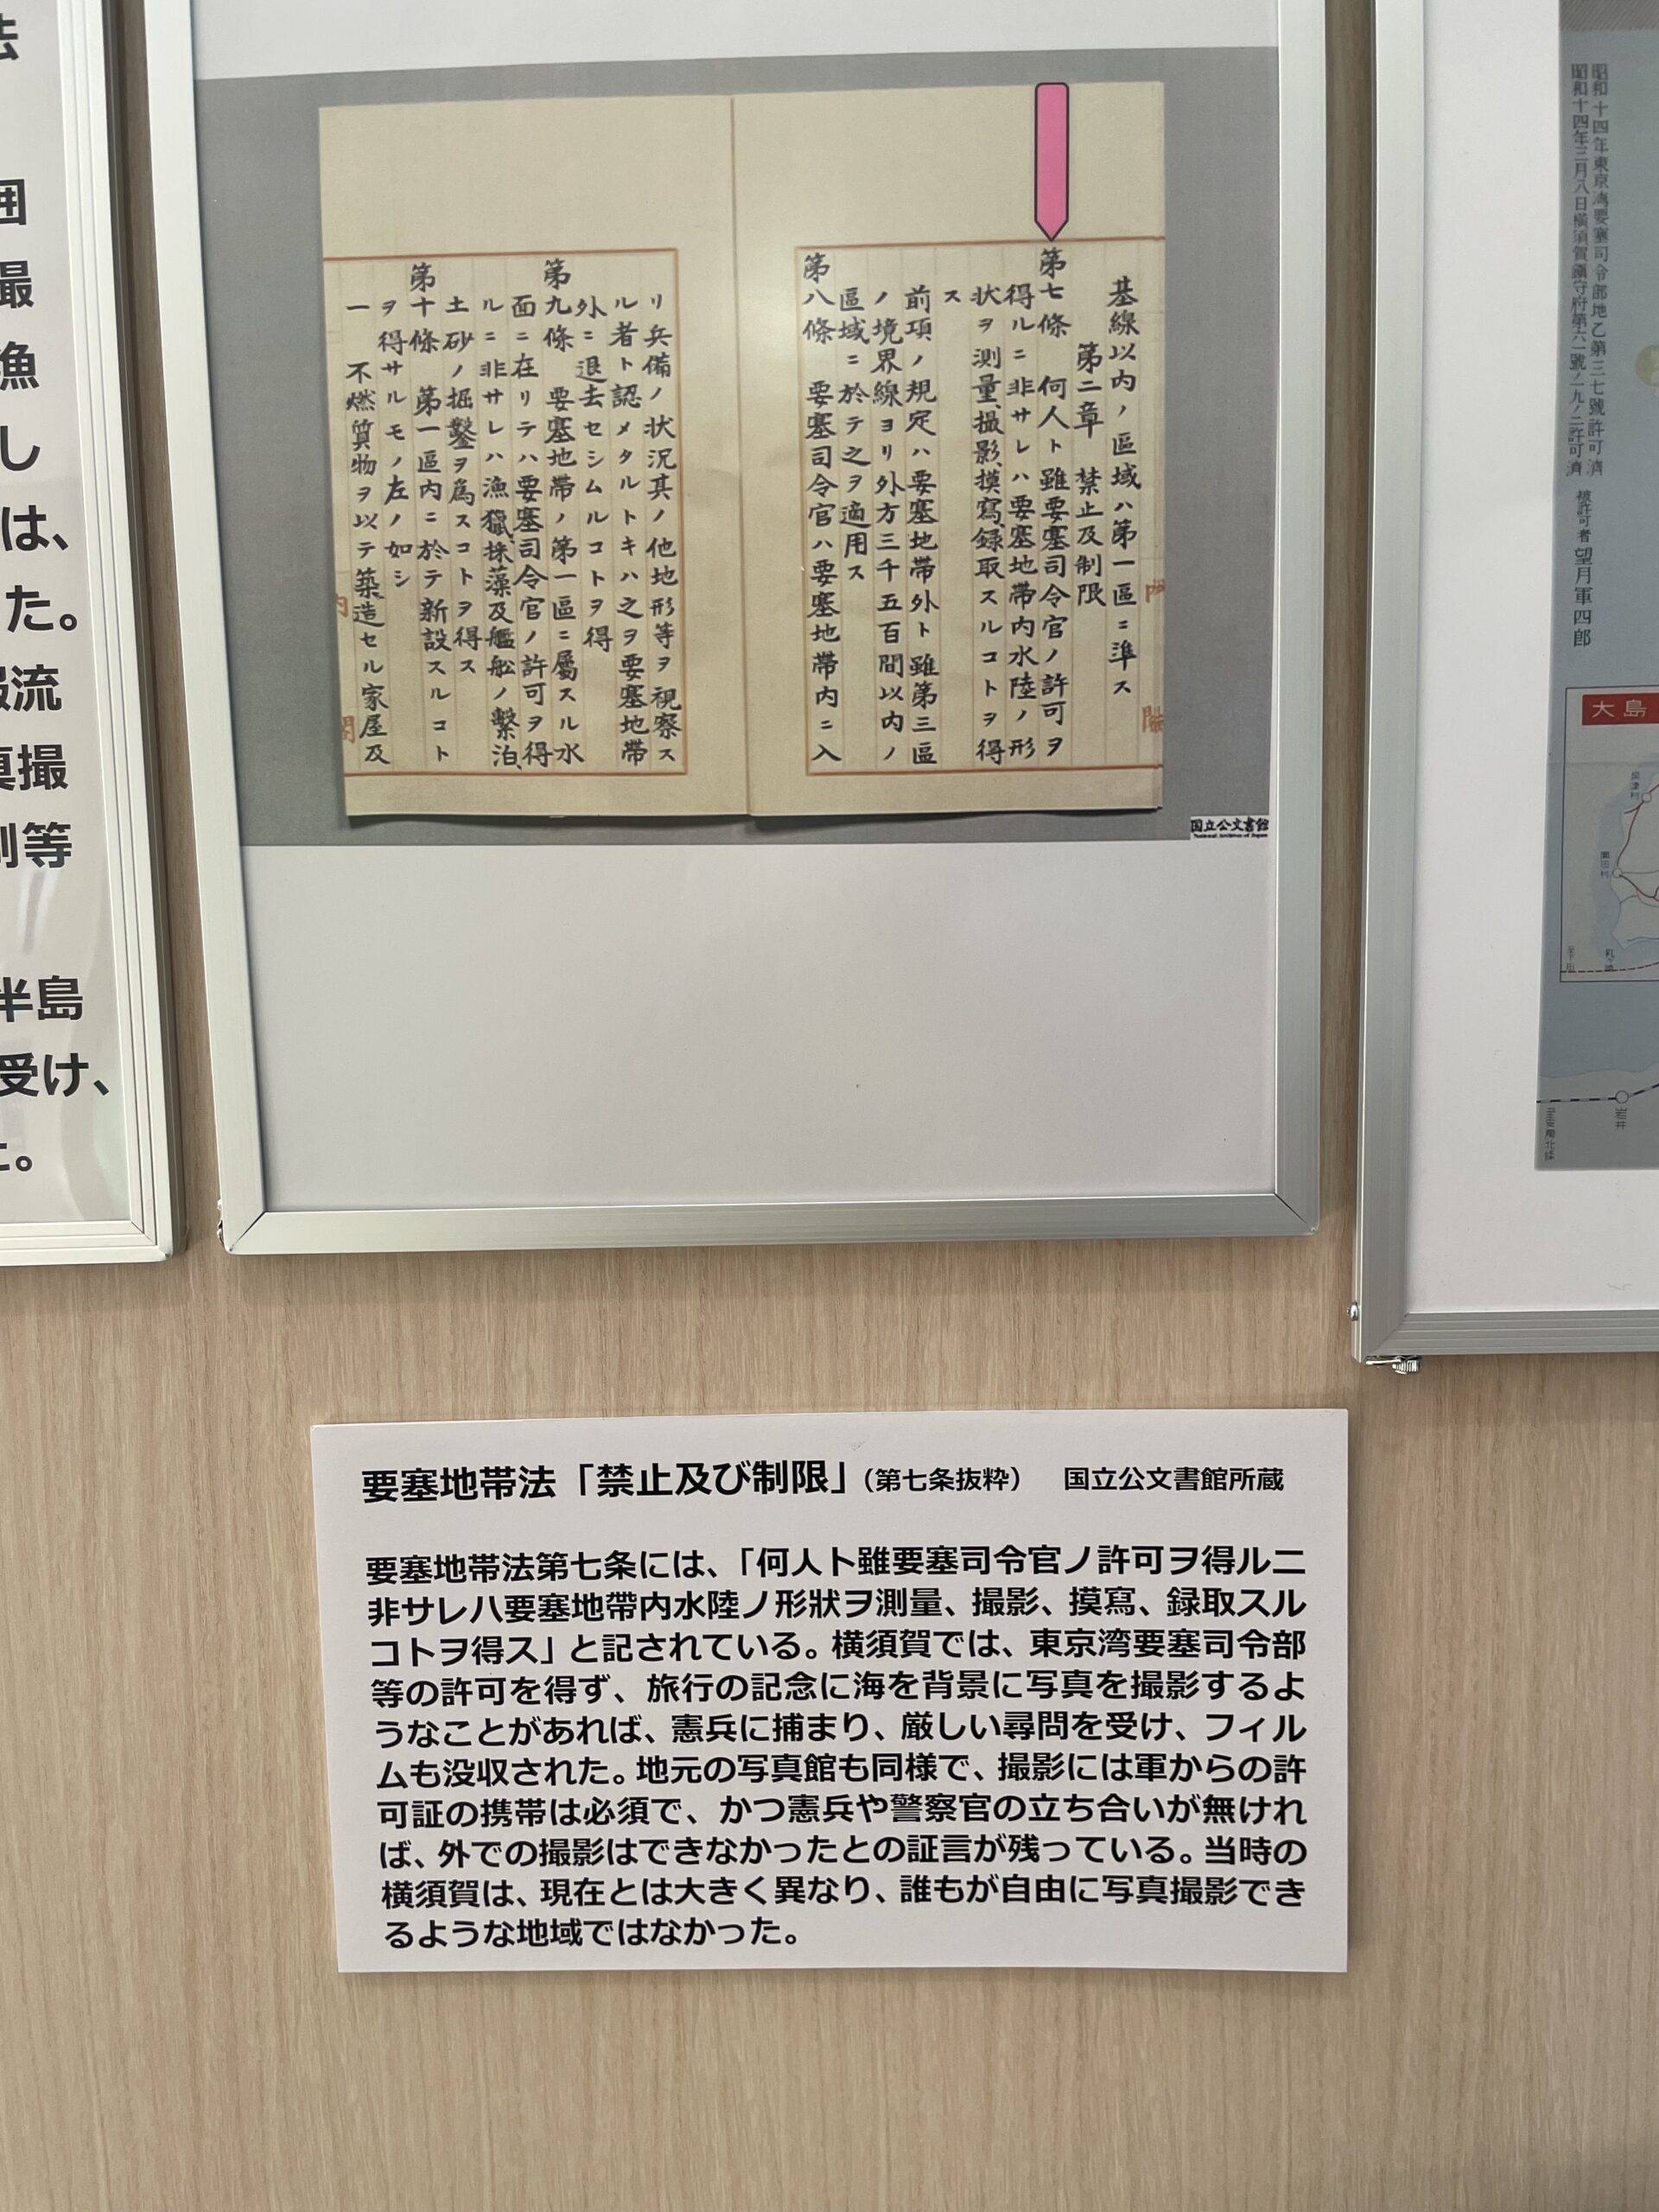 法
囲
最
漁
し
は、
た。
報流
真撮
制等
半島
受け、
た。
基線以内ノ區域ハ第一區ニ準ス
第二章 禁止及制限
第七條 何人ト雖要塞司令官ノ許可ヲ
得ルニ非サレハ要塞地帶内水陸ノ形
状ヲ測量、撮影、摸寫、録取スルコトヲ得
ス
前項ノ規定ハ要塞地帶外ト雖第三區
ノ境界線ヨリ外方三千五百間以内ノ
區域ニ於テ之ヲ適用ス
第八條 要塞司令官ハ要塞地帶内ニ入
リ兵備ノ状況其ノ他地形等ヲ視察ス
ル者ト認メタルトキハ之ヲ要塞地帶
外ニ退去セシムルコトヲ得
第九條 要塞地帶ノ第一區ニ屬スル水
面ニ在リテハ要塞司令官ノ許可ヲ得
ルニ非サレハ漁獵、採藻及艦舩ノ繋泊、
土砂ノ掘鑿ヲ爲スコトヲ得ス
第十條 第一區内ニ於テ新設スルコト
ヲ得サルモノ左ノ如シ
一 不燃質物ヲ以テ築造セル家屋及
内
閣
国立公文書館
National Archives of Japan
昭和十四年東京湾要塞司令部地乙第三七號許可濟
被許可者 望月軍四郎
大島
岩井
要塞地帯法「禁止及び制限」（第七条抜粋） 国立公文書館所蔵
要塞地帯法第七条には、「何人ト雖要塞司令官ノ許可ヲ得ルニ
非サレハ要塞地帶内水陸ノ形狀ヲ測量、撮影、摸寫、録取スル
コトヲ得ス」と記されている。横須賀では、東京湾要塞司令部
等の許可を得ず、旅行の記念に海を背景に写真を撮影するよ
うなことがあれば、憲兵に捕まり、厳しい尋問を受け、フィル
ムも没収された。地元の写真館も同様で、撮影には軍からの許
可証の携帯は必須で、かつ憲兵や警察官の立ち合いが無けれ
ば、外での撮影はできなかったとの証言が残っている。当時の
横須賀は、現在とは大きく異なり、誰もが自由に写真撮影でき
るような地域ではなかった。